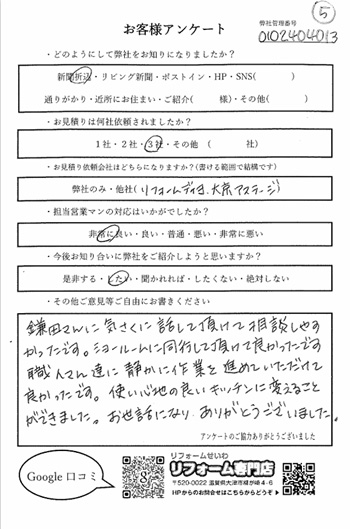 ⑤
お客様アンケート
弊社管理番号
0102404013
・どのようにして弊社をお知りになりましたか？
新聞折込・リビング新聞・ポストイン・HP・SNS( )
通りがかり・近所にお住まい・ご紹介( 様)・その他( )
・お見積りは何社依頼されましたか？
1社・2社・3社・その他 ( 社)
・お見積り依頼会社はどちらになりますか？(書ける範囲で結構です)
弊社のみ・他社( リフォーム 大京アステージ)
・担当営業マンの対応はいかがでしたか？
非常に良い・良い・普通・悪い・非常に悪い
・今後お知り合いに弊社をご紹介しようと思いますか？
是非する・したい・聞かれれば・したくない・絶対しない
・その他ご意見等ご自由にお書きください
鎌田さんに気さくに話して頂けて相談しやす
かったです。ショールームに同行して頂けて良かったです
職人さん達に静かに作業を進めていただけて
良かったです。使い心地の良いキッチンに変えること
ができました。お世話になりありがとうございました。
アンケートのご協力ありがとうございました
Google 口コミ
リフォームせいわ
リフォーム専門店
〒520-0022 滋賀県大津市柳が崎4-6
HPからのお問合せはこちらからどうぞ